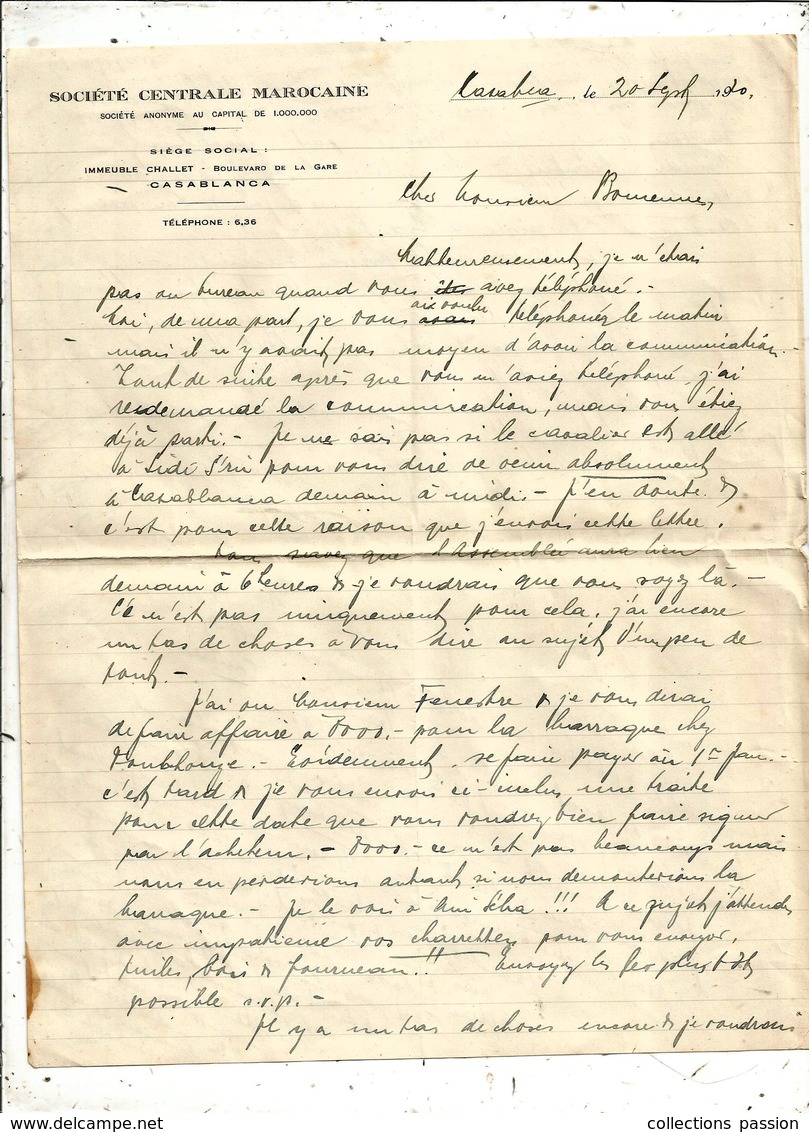 SOCIÉTÉ CENTRALE MAROCAINE
SOCIÉTÉ ANONYME AU CAPITAL DE 1.000.000
SIÈGE SOCIAL :
IMMEUBLE CHALLET - BOULEVARD DE LA GARE
CASABLANCA
TÉLÉPHONE : 6,36
le 20 Sept 1920.
Cher Monsieur
Malheureusement, je n'étais
pas au bureau quand vous avez téléphoné. -
Moi, de ma part, je vous ai voulu téléphoner le matin
mais il n'y avait pas moyen d'avoir la communication. -
Tout de suite après que vous m'aviez téléphoné, j'ai
redemandé la communication, mais vous étiez
déjà parti. - Je ne sais pas si le cavalier est allé
à Sidi pour vous dire de venir absolument
à Casablanca demain à midi. - J'en doute &
c'est pour cette raison que j'envois cette lettre.
Vous savez que l'Assemblée aura lieu
demain à 6 heures & je voudrais que vous soyez là. -
Ce n'est pas uniquement pour cela, j'ai encore
un tas de choses à vous dire au sujet d'un peu de
tout. -
J'ai vu Monsieur Fenestre & je vous dirai
de faire affaire à 8000.- pour la barraque chez
Evidemment, se faire payer au 1er Jan. -
c'est tard & je vous envois ci-inclus une traite
pour cette date que vous voudrez bien faire signer
par l'acheteur. - 8000.- ce n'est pas beaucoup mais
nous en perderions autant si nous demonterions la
barraque. - Je le vois à Ain !!! A ce sujet j'attends
avec impatience vos charrettes pour vous envoyer,
tuiles, bois & fourneau !! Envoyez les le plus tôt
possible s.v.p. -
Il y a un tas de choses encore & je voudrais
collections passion